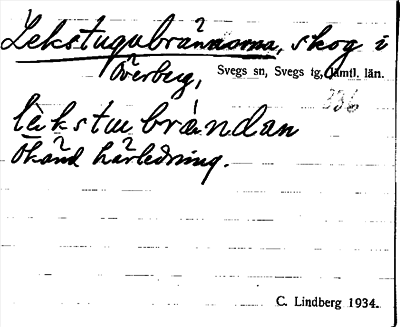 Lekstugubrännorna, skog i
Överberg, Svegs sn, Svegs tg, Jämtl. län.
336
lekstubrändan
Okänd härledning.
C. Lindberg 1934.